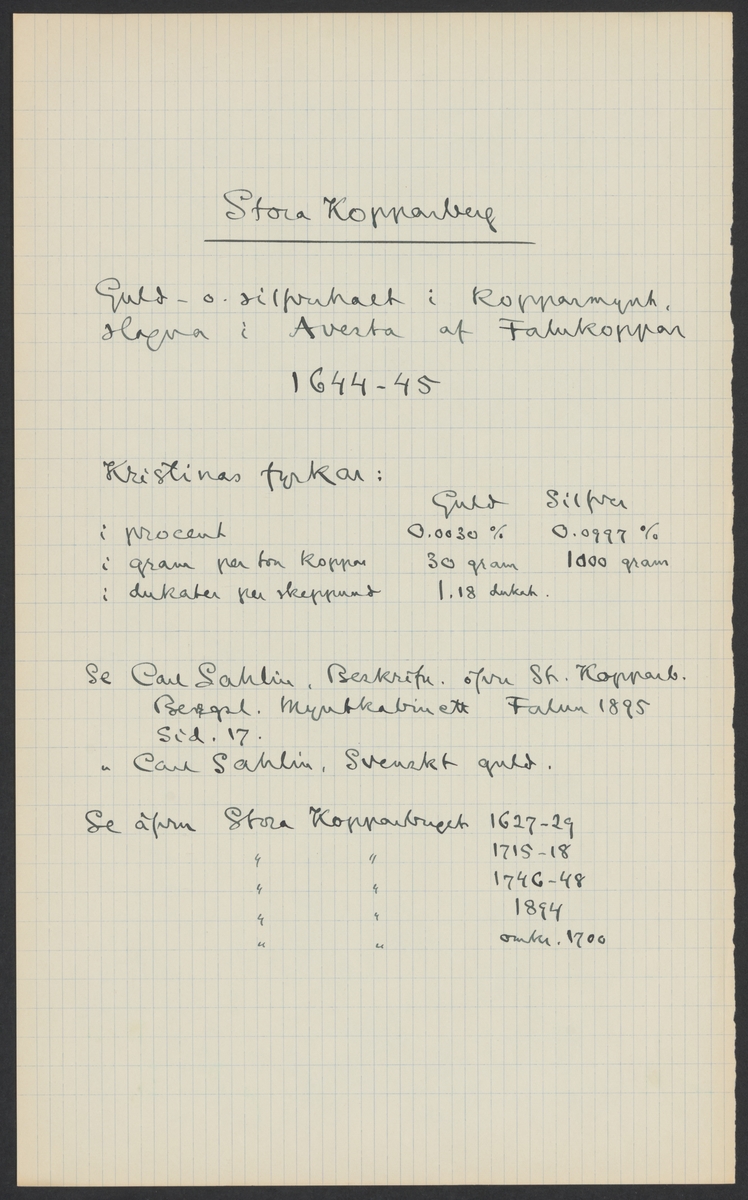 Stora Kopparberg
Guld- o. silfverhalt i kopparmynt,
slagna i Avesta af Falukoppar
1644-45
Kristinas fyrkar:
Guld Silfver
i procent 0.0030 % 0.0997 %
i gram per ton koppar 30 gram 1000 gram
i dukater per skeppund 1.18 dukat.
Se Carl Sahlin, Beskrifn. öfver St. Kopparb.
Bergsl. Myntkabinett Falun 1895
Sid. 17.
" Carl Sahlin, Svenskt guld.
Se äfven Stora Kopparberget 1627-29
" " 1715-18
" " 1746-48
" " 1894
" " omkr. 1700